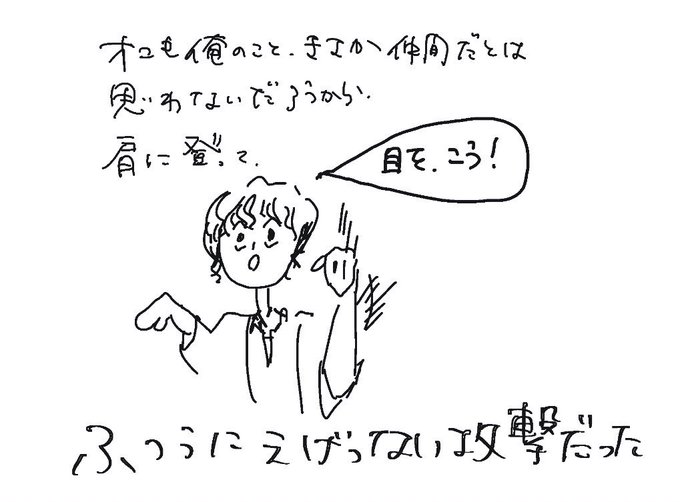 オコも俺のこと、まさか仲間だとは
思いわないだろうから、
肩に登って、
目を、こう!
ふつうにえげつない攻撃だった